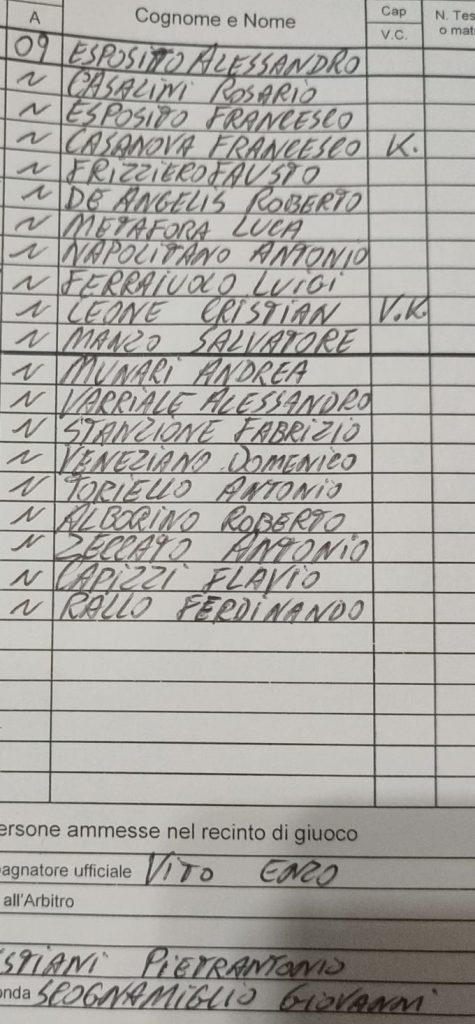 A Cognome e Nome Cap N. Tes
V.C. o mat
09 ESPOSITO ALESSANDRO
~ CASALINI ROSARIO
~ ESPOSITO FRANCESCO
~ CASANOVA FRANCESCO K.
~ FRIZZIERO FAUSTO
~ DE ANGELIS ROBERTO
~ METAFORA LUCA
~ NAPOLITANO ANTONIO
~ FERRAIUOLO LUIGI
~ LEONE CRISTIAN V.K
~ MANZO SALVATORE
~ MUNARI ANDREA
~ VARRIALE ALESSANDRO
~ STANZIONE FABRIZIO
~ VENEZIANO DOMENICO
~ TORIELLO ANTONIO
~ ALBORINO ROBERTO
~ ZECCATO ANTONIO
~ CAPIZZI FLAVIO
~ RALLO FERDINANDO
ersone ammesse nel recinto di giuoco
agnatore ufficiale VITO ENZO
all'Arbitro
STIANI PIETRANTONIO
onda SCOGNAMIGLIO GIOVANNI